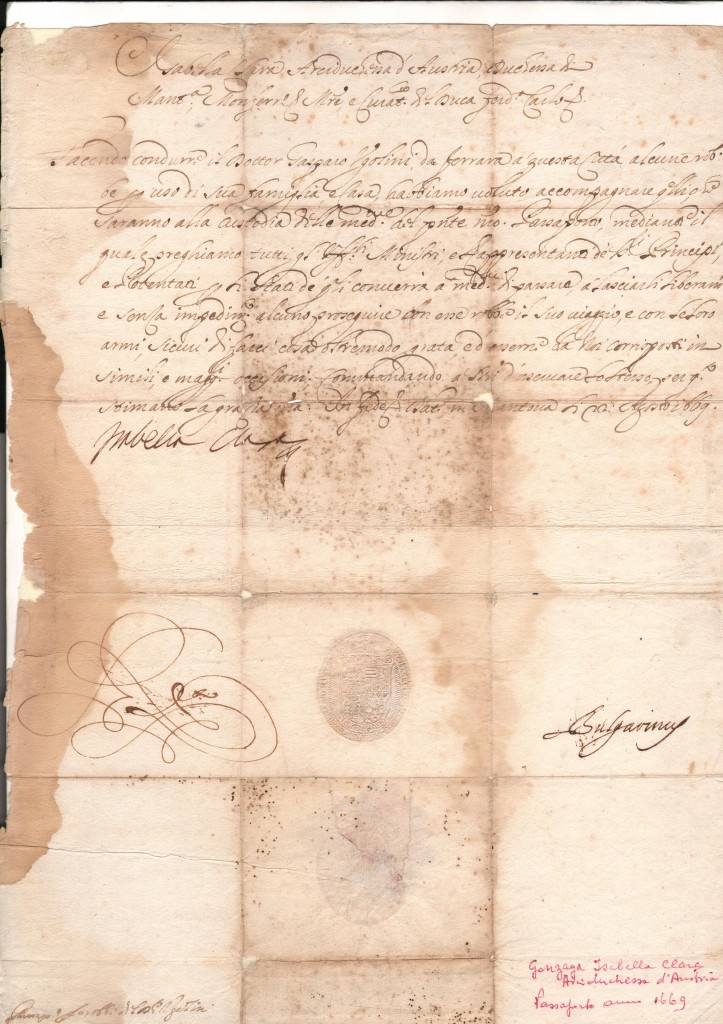 Isabella Clara Arciduchessa d'Austria, Duchessa di
Mant.a, Monferr.o &c. M.re e Curat.ce del Duca Ferd.o Carlo &c.
Facendo condurre il Dottor Gasparo Ugolini da Ferrara a questa Città alcune rob-
be per uso di sua famiglia e casa, habbiamo voluto accompagnare q.lli che
saranno alla custodia delle med.e del pñte nro. Passaporto, mediante il
quale preghiamo tutti gl' Ministri, e Rappresentanti di Principi,
e Potentati per li Stati de quali converrà a med.mi di passare a lasciarli liberam.te
e senza impedim.to alcuno proseguire con esse robbe il suo viaggio, e con le loro
armi, sicuri di farci cosa oltremodo grata, ed essere da Noi corrisposti in
simili, e mag.ri occasioni. Commandando a di osservare lo stesso, per q.to
stimano la grazia nra. In fede &c. Dat. in Mantova li Agosto 1669.
Isabella Clara
Bulgarinus
Gonzaga Isabella Clara
Arciduchessa d'Austria
Passaporto anno 1669